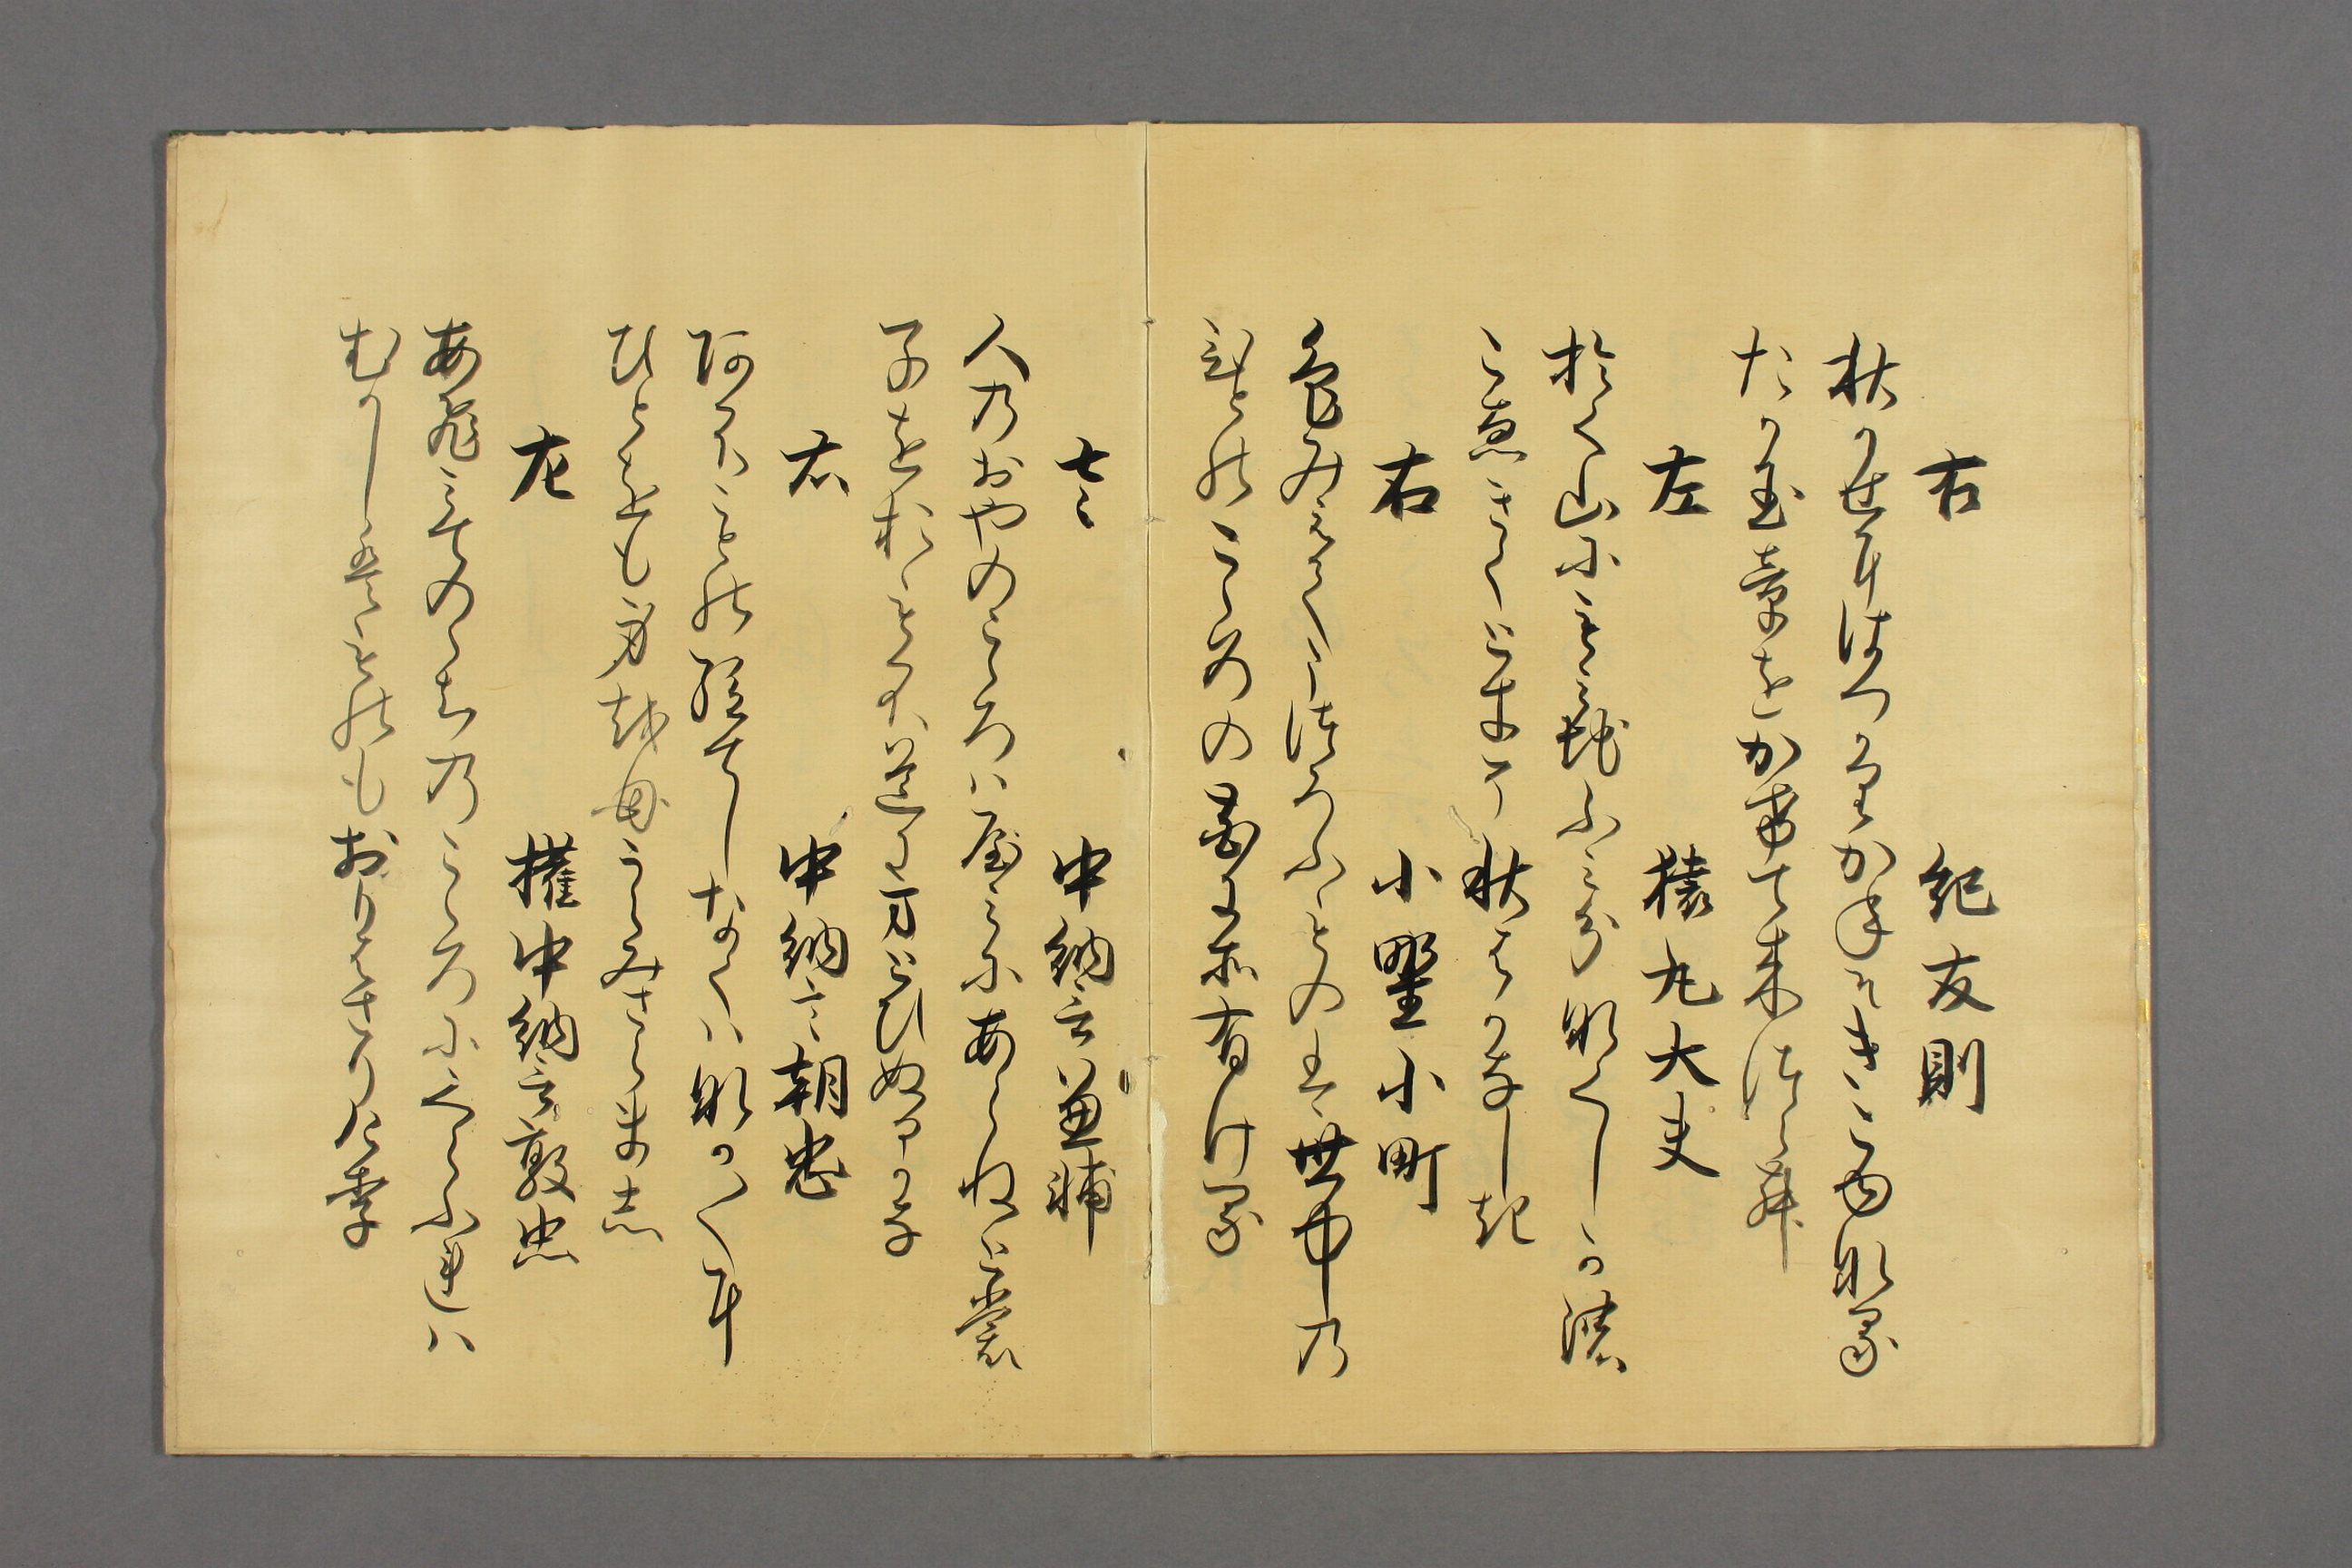 右 紀友則
秋かせにはつかりかねそきこゆなる
たか玉章をかけて来つらん
左 猿丸大夫
おく山にもみちふみわけなくしかの
こゑきくときそ秋はかなしき
右 小野小町
色みえてうつろふものは世中の
ひとのこゝろの花にそ有ける
左 中納言兼輔
人のおやのこゝろはやみにあらねとも
子をおもふ道にまとひぬるかな
右 中納言朝忠
あふことのたえてしなくはなか〳〵に
ひとをも身をもうらみさらまし
左 権中納言敦忠
あひみてのゝちのこゝろにくらふれは
むかしはものもおもはさりけり